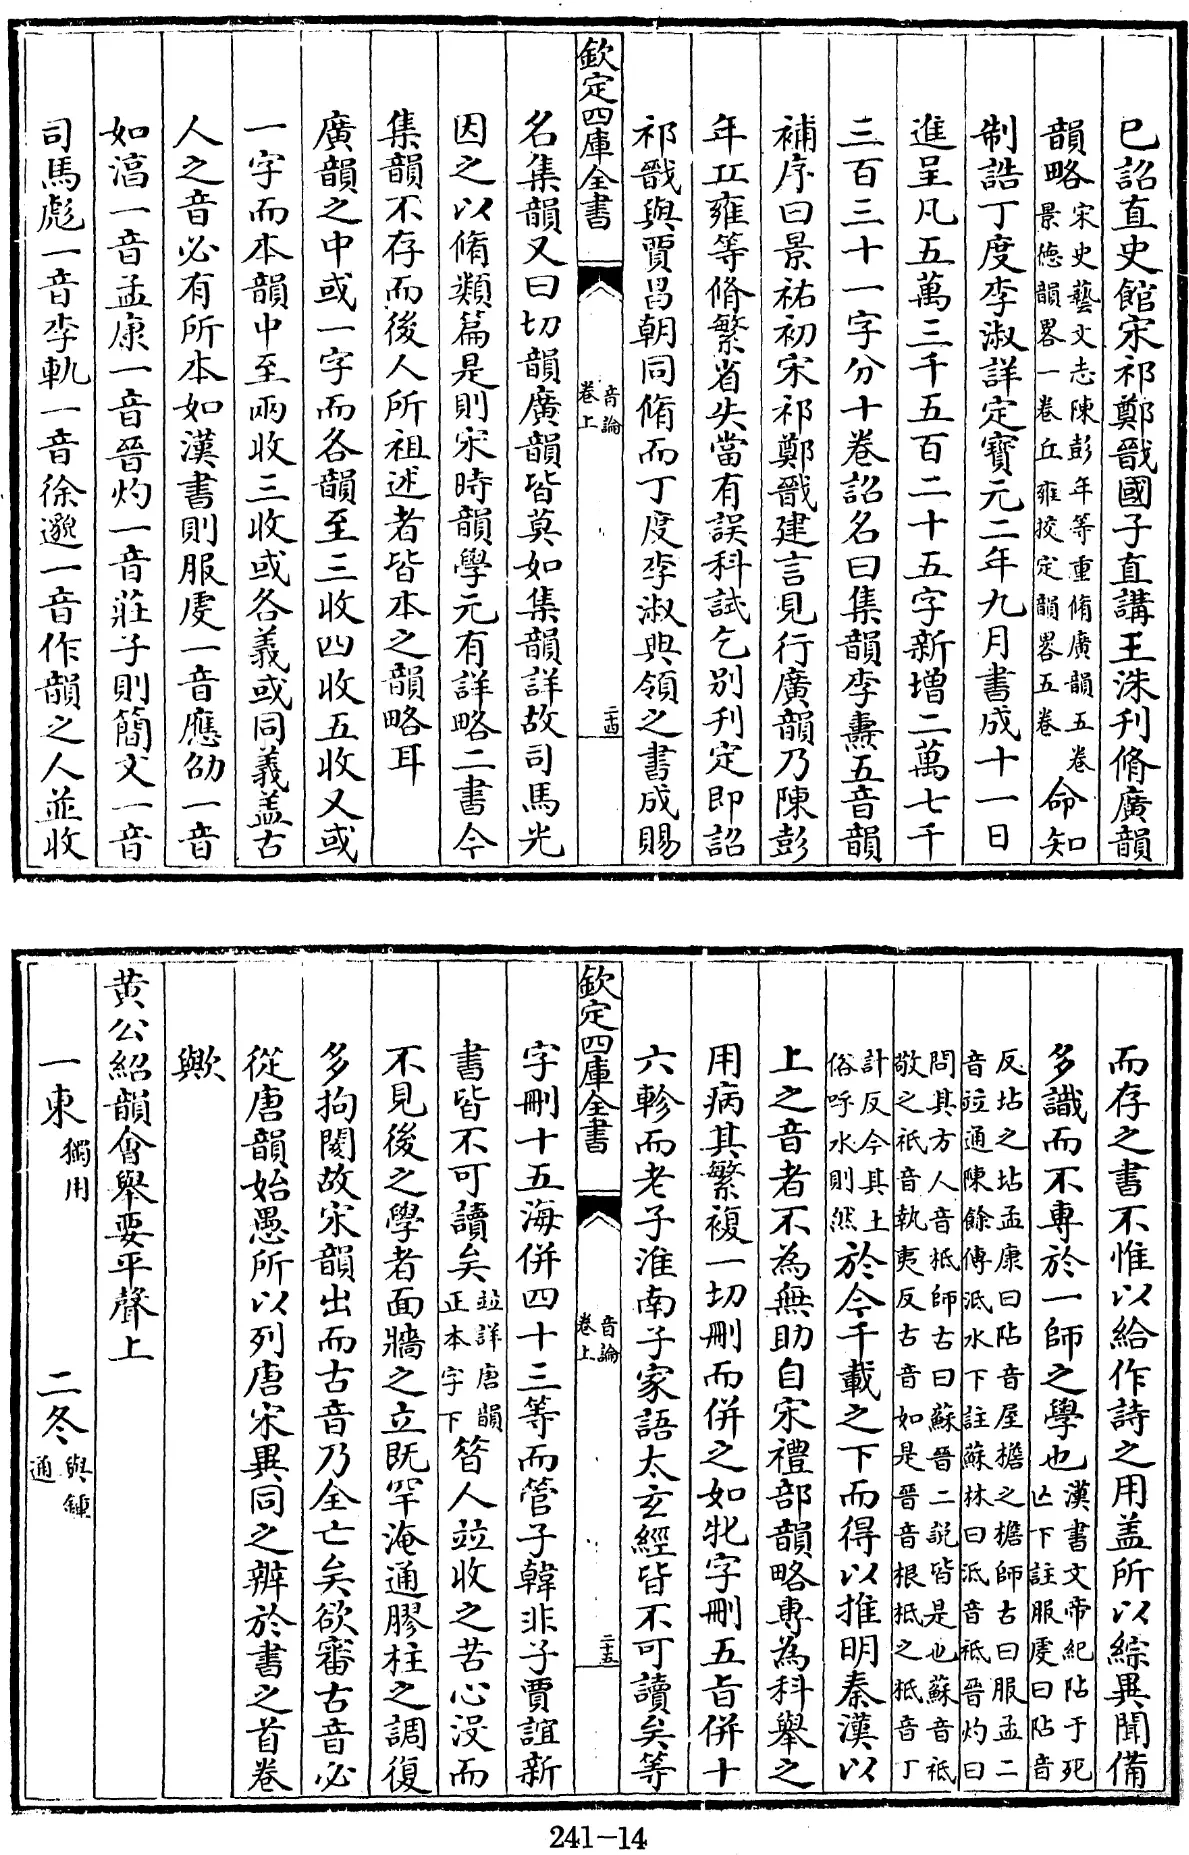 已詔直史館宋祁鄭戩國子直講王洙刋脩廣韻
韻略宋史藝文志陳彭年等重脩廣韻五卷景德韻畧一卷丘雍挍定韻畧五卷命知
制誥丁度李淑詳定寶元二年九月書成十一日
進呈凡五萬三千五百二十五字新増二萬七千
三百三十一字分十卷詔名曰集韻李燾五音韻
補序曰景祐初宋祁鄭戩建言見行廣韻乃陳彭
年丘雍等脩繁省失當有誤科試乞别刋定即詔
祁戩與賈昌朝同脩而丁度李淑典領之書成賜
欽定四庫全書
音論
卷上
二十四
名集韻又曰切韻廣韻皆莫如集韻詳故司馬光
因之以脩類篇是則宋時韻學元有詳略二書今
集韻不存而後人所祖述者皆本之韻略耳
廣韻之中或一字而各韻至三收四收五收又或
一字而本韻中至兩收三收或各義或同義盖古
人之音必有所本如漢書則服虔一音應劭一音
如淳一音孟康一音晉灼一音莊子則簡文一音
司馬彪一音李軌一音徐邈一音作韻之人並收
而存之書不惟以給作詩之用盖所以綜異聞備
多識而不專於一師之學也漢書文帝紀阽于死亡下註服虔曰阽音
反坫之坫孟康曰阽音屋檐之檐師古曰服孟二音竝通陳餘傳泜水下註蘇林曰泜音祗晉灼曰
問其方人音柢師古曰蘇晉二說皆是也蘇音祗敬之祇音執夷反古音如是晉音根柢之柢音丁
計反今其土俗呼水則然於今千載之下而得以推明秦漢以
上之音者不為無助自宋禮部韻略專為科舉之
用病其繁複一切刪而併之如牝字刪五旨併十
六軫而老子淮南子家語太玄經皆不可讀矣等
欽定四庫全書
音論
卷上
二十五
字刪十五海併四十三等而管子韓非子賈誼新
書皆不可讀矣竝詳唐韻正本字下昝人竝收之苦心没而
不見後之學者面牆之立既罕淹通膠柱之調復
多拘閡故宋韻出而古音乃全亡矣欲審古音必
從唐韻始愚所以列唐宋異同之辨於書之首卷
歟
黄公紹韻㑹舉要平聲上
一東獨用 二冬與鍾通
241-14